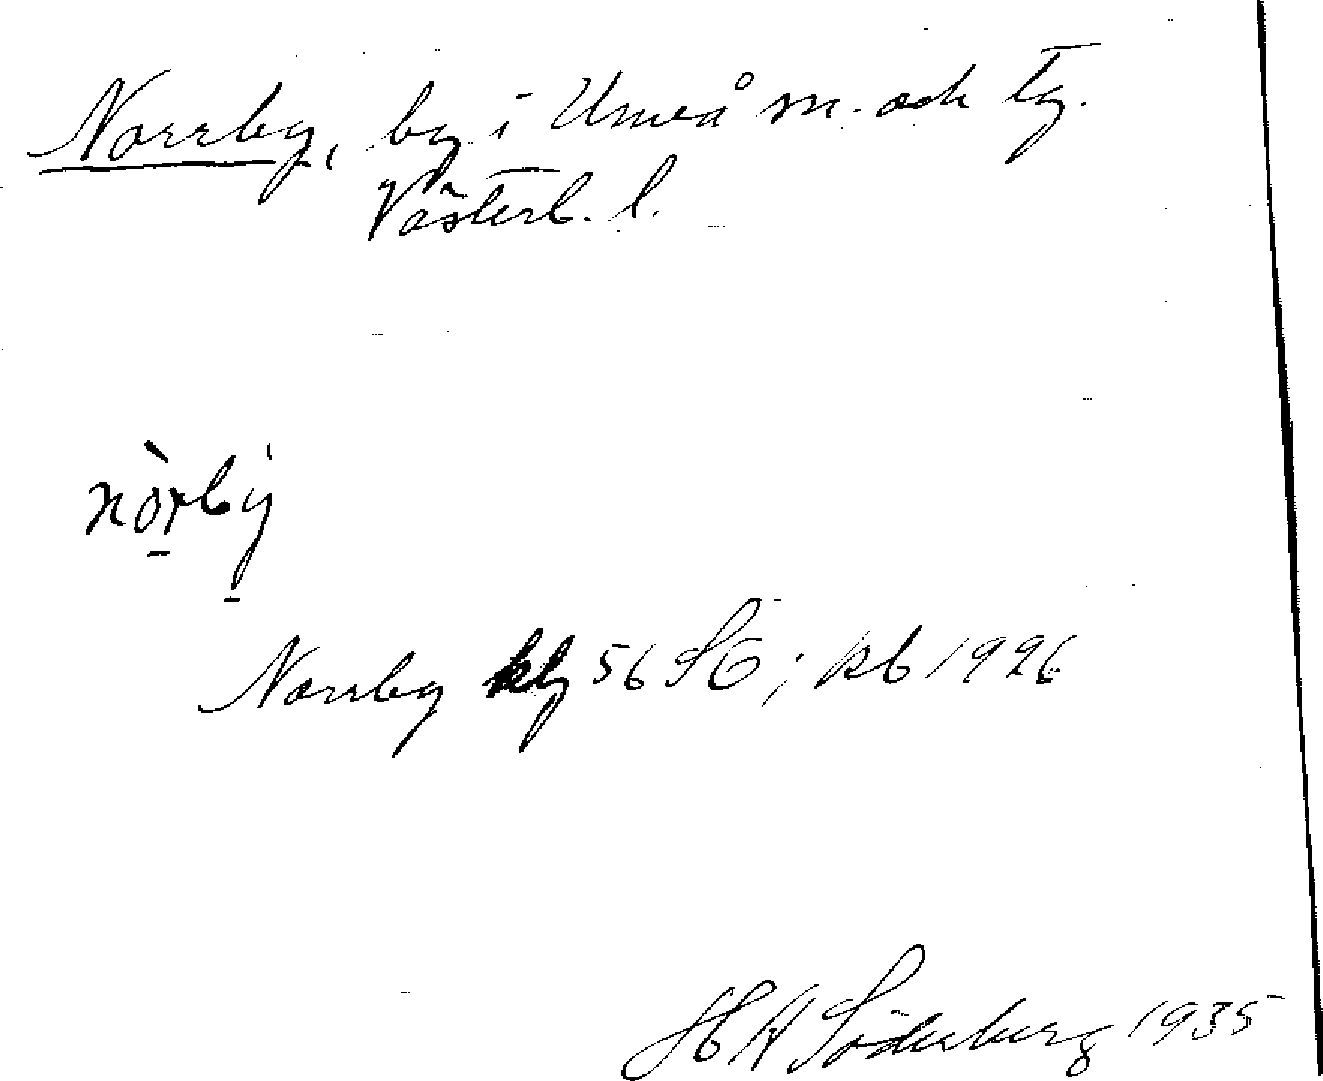 Norrby, by i Umeå sn. och tg.
Västerb. l.
nòrbÿ
Norrby 56 SG; kb 1926
H A Söderberg 1935